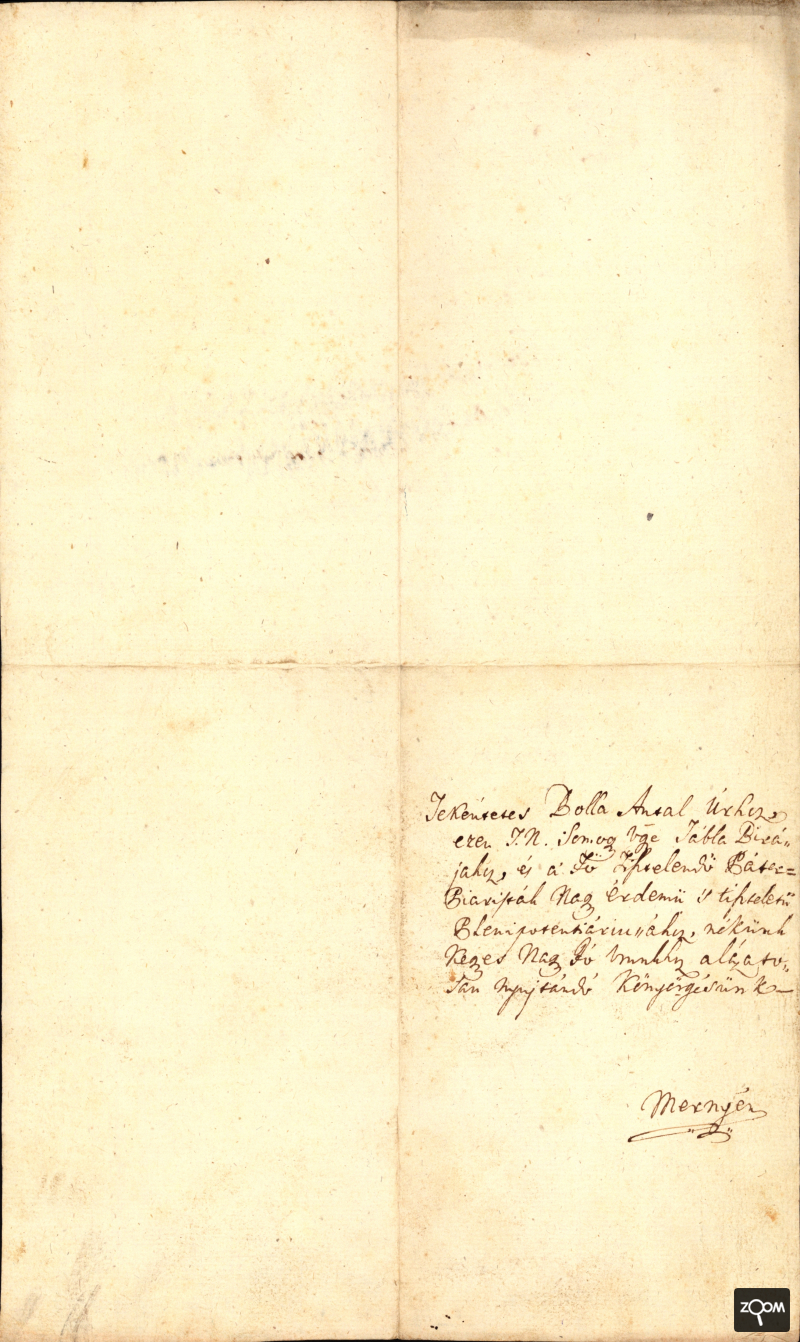 Tekéntetes Bolla Antal Úrhoz,
ezen T. N. Somog Vgye Tábla Birá„
jahoz, és a' Fő Tiszteletendő Páter=
Piaristák Nagy érdemü 's tiszteletü
Plenipotentiáriu„ához, nékünk
Kegyes Nagy Jó Urunkhoz alázato„
san nyujtándó Könyörgésünk
Mernyén
ZOOM